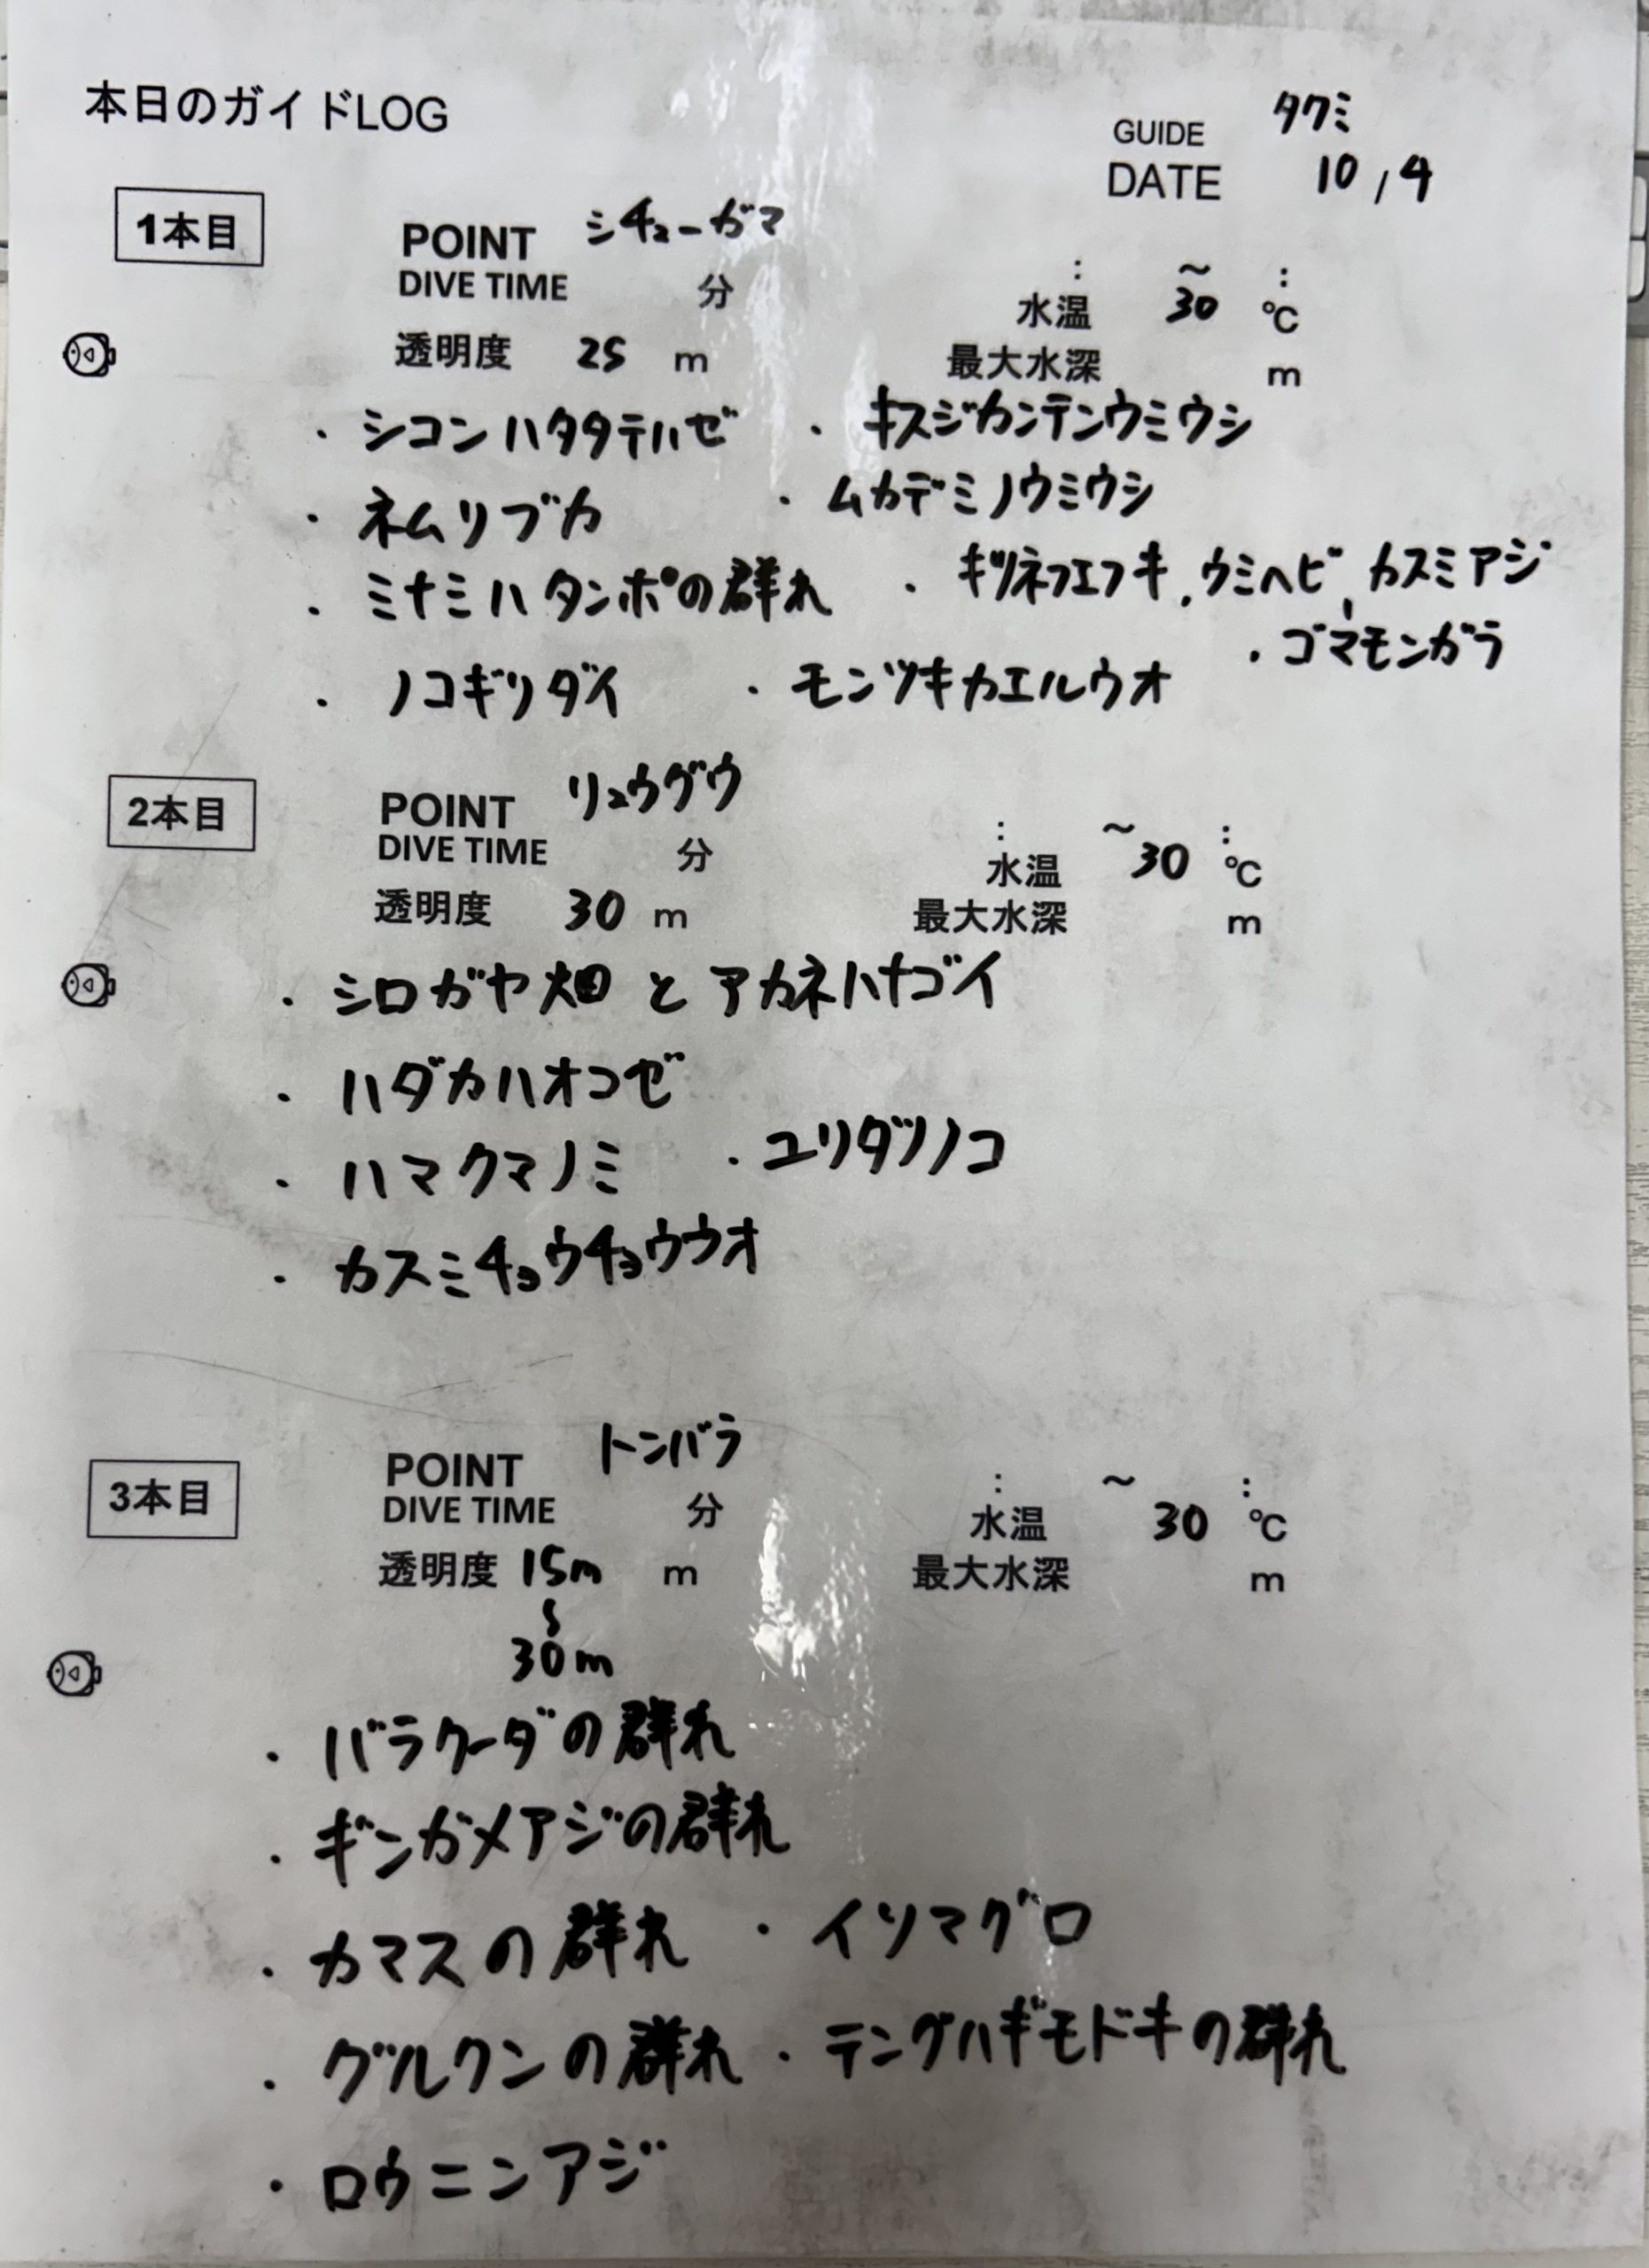 本日のガイドLOG
GUIDE タクミ
DATE 10/4
1本目
POINT シチューガマ
DIVE TIME 分 : ～ :
水温 30 ℃
透明度 25 m 最大水深 m
・シコンハタタテハゼ ・キスジカンテンウミウシ
・ネムリブカ ・ムカデミノウミウシ
・ミナミハタンポの群れ ・キツネフエフキ、ウミヘビ、カスミアジ
・ゴマモンガラ
・ノコギリダイ ・モンツキカエルウオ
2本目
POINT リュウグウ
DIVE TIME 分 : ～ :
水温 30 ℃
透明度 30 m 最大水深 m
・シロガヤ畑とアカネハナゴイ
・ハダカハオコゼ
・ハマクマノミ ・ユリタツノコ
・カスミチョウチョウウオ
3本目
POINT トンバラ
DIVE TIME 分 : ～ :
水温 30 ℃
透明度 15m m 最大水深 m
〜
30m
・バラクーダの群れ
・ギンガメアジの群れ
・カマスの群れ ・イソマグロ
・グルクンの群れ ・テングハギモドキの群れ
・ロウニンアジ